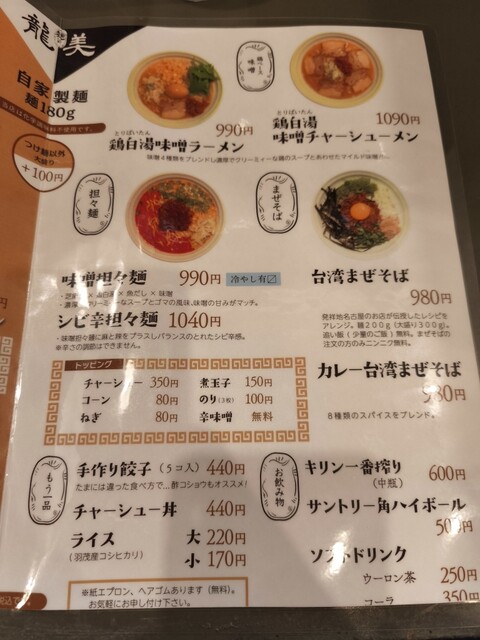 龍 美
自家製麺
麺180g
つけ麺以外
大盛り
+100円
鶏ベース
味噌
990円
とりぱいたん
鶏白湯味噌ラーメン
1090円
とりぱいたん
鶏白湯
味噌チャーシューメン
味噌4種類をブレンドし濃厚でクリーミーな鶏のスープとあわせたマイルド味噌
担々麺
味噌担々麺 990円 冷やし有
シビ辛担々麺 1040円
・味噌担々麺に麻と辣をプラスしバランスのとれたシビ辛感。
※辛さの調節はできません。
まぜそば
台湾まぜそば
980円
発祥地名古屋のお店が伝授したレシピを
アレンジ。麺200g(大盛り300g)。
追い飯(少量のご飯)無料。まぜそばの
注文の方のみニンニク無料。
カレー台湾まぜそば
980円
8種類のスパイスをブレンド。
トッピング
チャーシュー 350円 煮玉子 150円
コーン 80円 のり(3枚) 100円
ねぎ 80円 辛味噌 無料
もう一品
手作り餃子(5コ入) 440円
たまには違った食べ方で…酢コショウもオススメ!
チャーシュー丼 440円
ライス 大 220円
(羽茂産コシヒカリ) 小 170円
お飲み物
キリン一番搾り
(中瓶) 600円
サントリー角ハイボール
500円
ソフトドリンク
ウーロン茶 250円
コーラ 350円
※紙エプロン、ヘアゴムあります(無料)。
お気軽にお申し付け下さい。